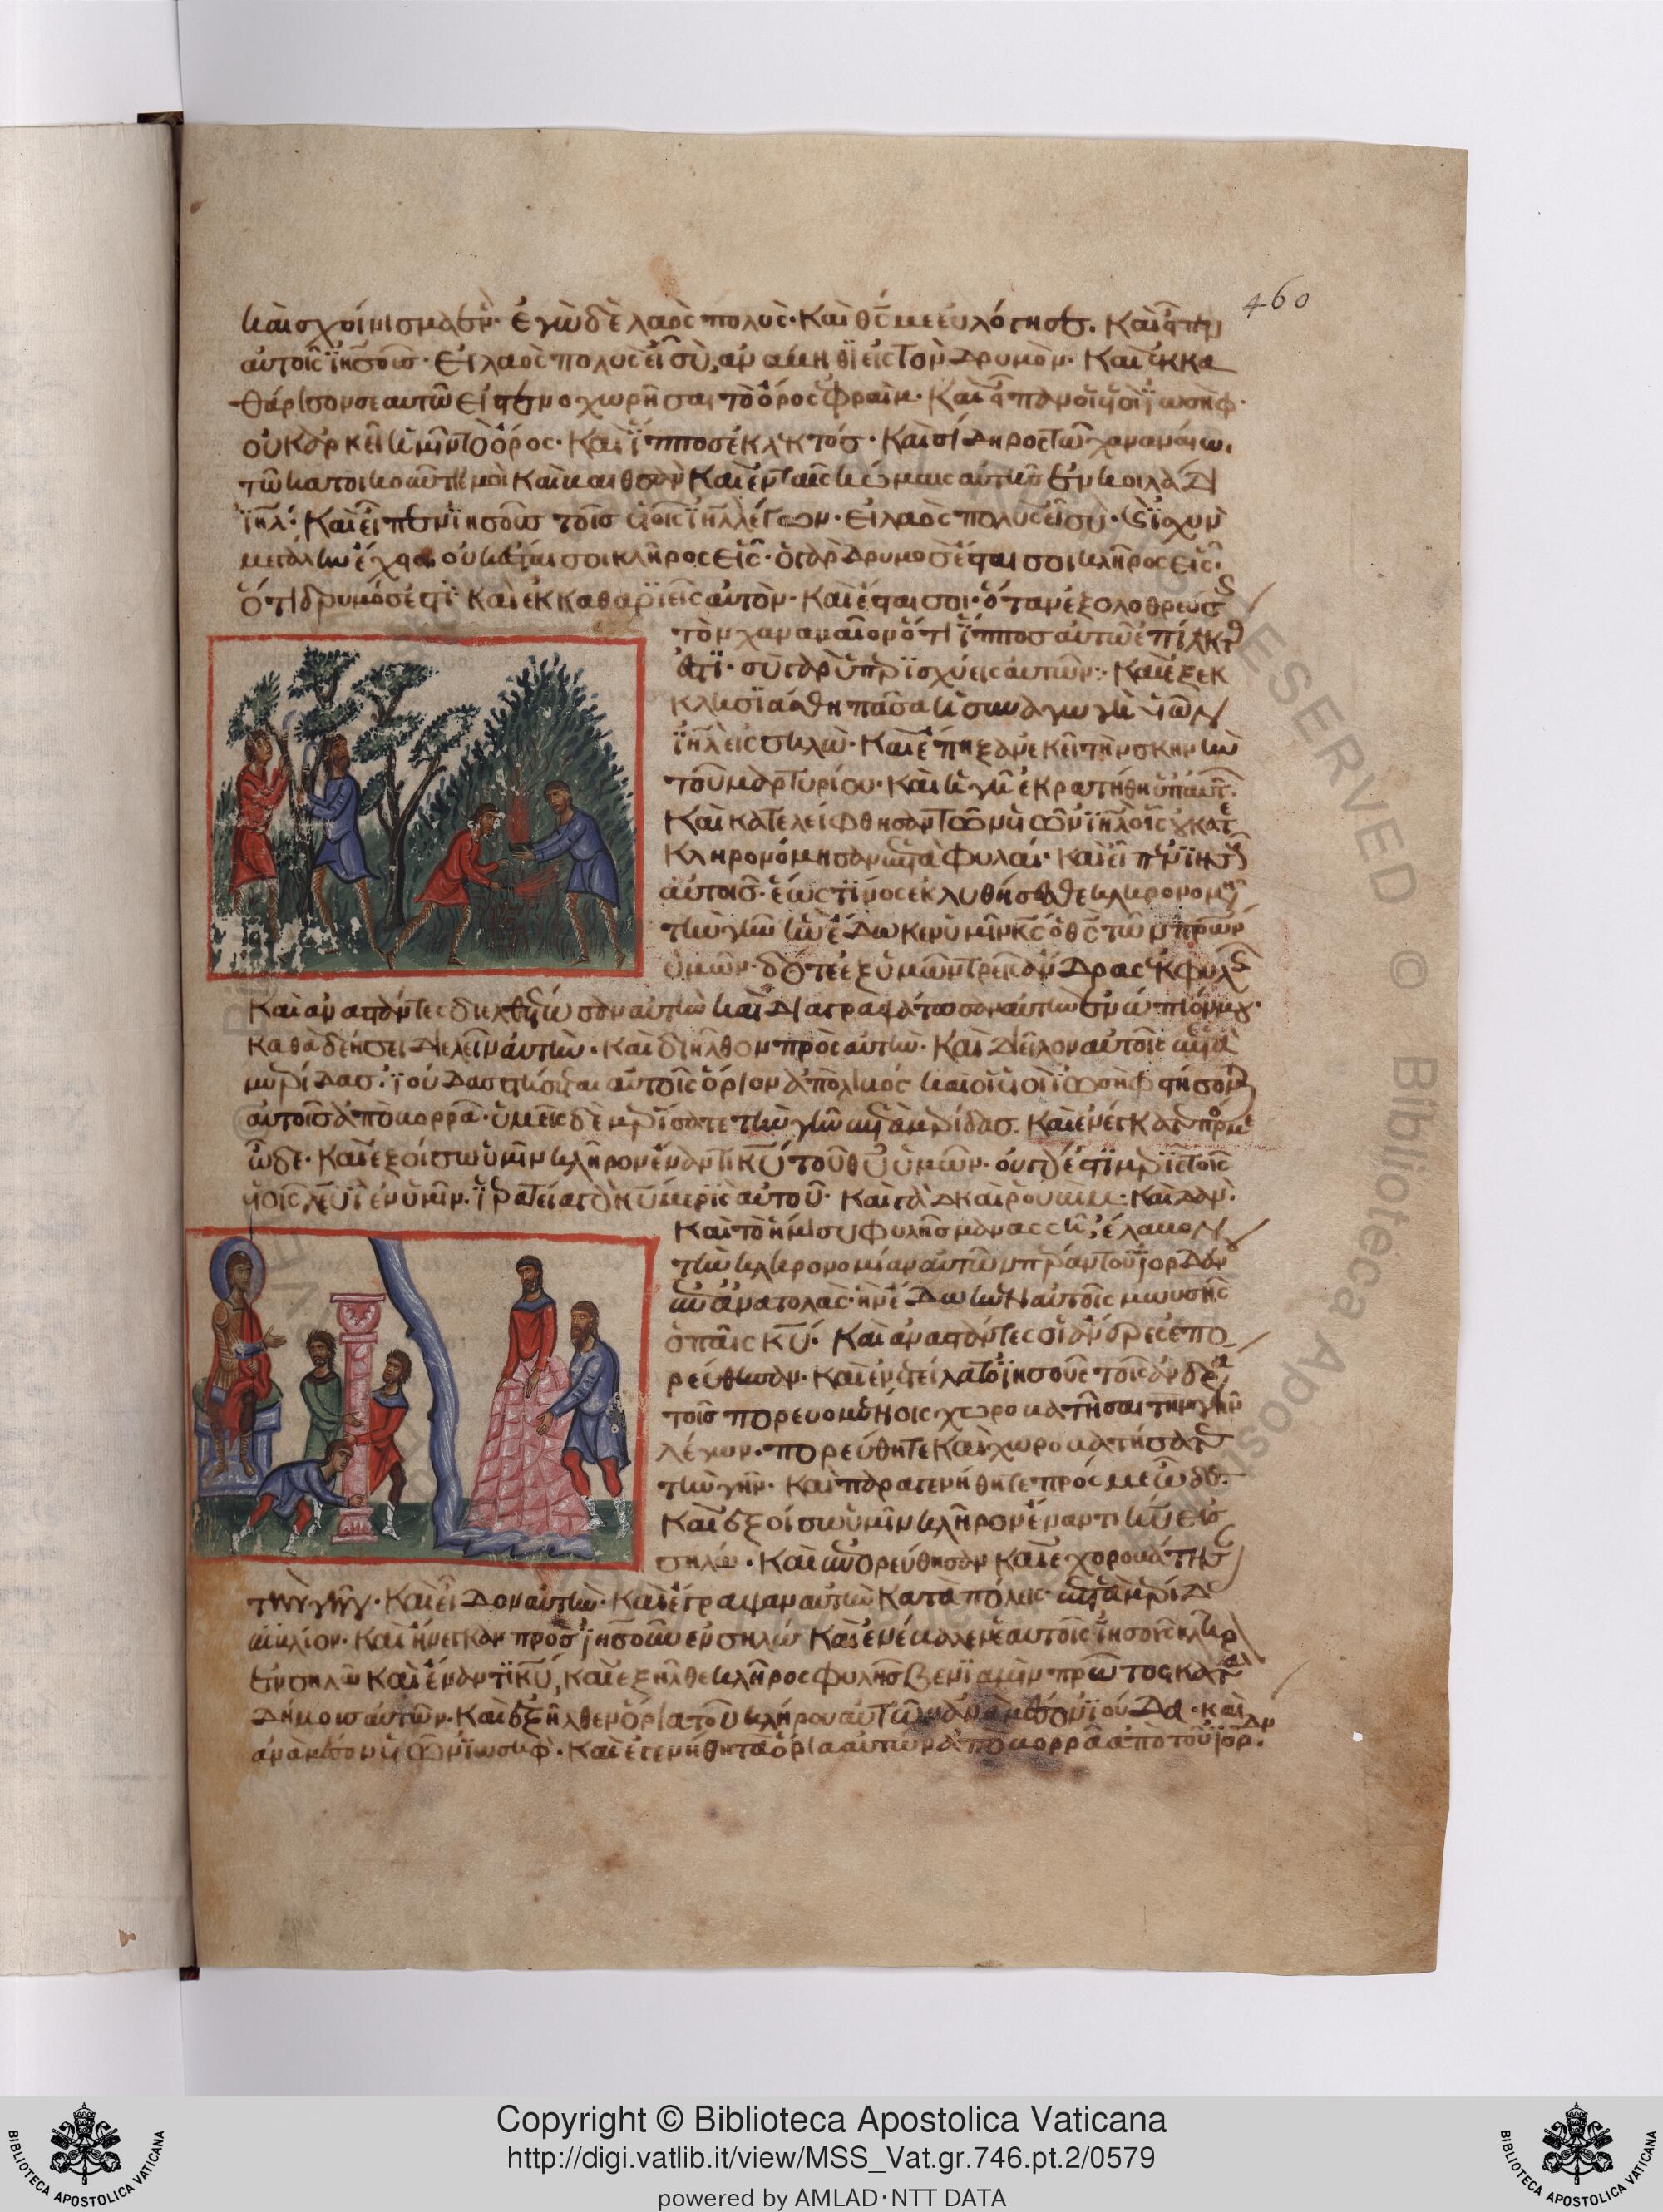 460
καὶ σχοίνισμα ἕν· ἐγὼ δὲ λαὸς πολὺς· καὶ ὁ θς με εὐλόγησε. καὶ εἶπεν
αὐτοῖς ἰησοῦς· εἰ λαὸς πολὺς εἶ σὺ, ἀνάβηθι εἰς τὸν δρυμὸν· καὶ ἐκκα
θάρισον σεαυτῶ εἰ στενοχωρῆ σαι τὸ ὄρος ἐφραΐμ· καὶ εἶπαν οἱ υἱοὶ ἰωσὴφ·
οὐκ ἀρκεῖ ἡμῖν τὸ ὄρος· καὶ ἵππος ἐκλεκτὸς· καὶ σίδηρος τῶ χαναναίω
ιηλ· καὶ εἶπεν ἰησοῦς τοῖς υἱοῖς ιηλ λέγων· εἰ λαὸς πολὺς εἶ σὺ· καὶ ἰσχὺν
μεγάλην ἔχεις οὐκ ἔσται σοι κλῆρος εἷς· ὁ γὰρ δρυμὸς ἔσται σοι κλῆρος εἷς·
ὅτι δρυμός ἐστι καὶ ἐκκαθαριεῖς αὐτὸν· καὶ ἔσται σοι· ὅταν ἐξολοθρεύσῃς
τὸν χαναναῖον ὅτι ἵππος αὐτῶ ἐπίλεκτος
ἐστι· σὺ γὰρ ὑπερισχύεις αὐτῶν· καὶ ἐξεκ
κλησιάσθη πᾶσα ἡ συναγωγὴ υἱῶν
ιηλ εἰς σηλὼ· καὶ ἔπηξαν ἐκεῖ τὴν σκηνὴν
τοῦ μαρτυρίου· καὶ ἡ γῆ ἐκρατήθη ὑπ' αὐτῶν
καὶ κατελείφθησαν τῶν υἱῶν ιηλ οἳ οὐ κατε
κληρονόμησαν ἑπτὰ φυλαί· καὶ εἶπεν ἰησοῦς
αὐτοῖς· ἕως τίνος ἐκλυθήσεσθε κληρονομῆσαι
τὴν γῆν ἣν ἔδωκεν ὑμῖν κς ὁ θς τῶν πρων
ὑμῶν· δότε ἐξ ὑμῶν τρεῖς ἄνδρας ἐκ φυλῆς
καὶ ἀναστάντες διελθέτωσαν αὐτὴν καὶ διαγραψάτωσαν αὐτὴν ἐνώπιόν μου·
καθὰ δεήσει διελεῖν αὐτὴν· καὶ διῆλθον πρὸς αὐτὴν· καὶ διεῖλον αὐτοῖς ἑπτὰ
μερίδας· ἰούδας στήσεται αὐτοῖς ὅριον ἀπὸ λιβὸς καὶ οἱ υἱοὶ ἰωσὴφ στήσονται
αὐτοῖς ἀπὸ βορρᾶ· ὑμεῖς δὲ μερίσατε τὴν γῆν ἑπτὰ μερίδας. καὶ ἐνέγκατε πρός με
ὧδε· καὶ ἐξοίσω ὑμῖν κλῆρον ἔναντι κυ τοῦ θυ ὑμῶν· οὐ γάρ ἐστι μερὶς τοῖς
υἱοῖς λευὶ ἐν ὑμῖν· ἱερατεία γὰρ κυ μερὶς αὐτοῦ· καὶ γὰδ καὶ ρουβὴμ· καὶ
καὶ τὸ ἥμισυ φυλῆς μανασσῆ, ἔλαβον
τὴν κληρονομίαν αὐτῶν πέραν τοῦ ἰορδάνου
ἐπ' ἀνατολὰς· ἣν ἔδωκεν αὐτοῖς μωυσῆς
ὁ παῖς κυ· καὶ ἀναστάντες οἱ ἄνδρες ἐπο
ρεύθησαν· καὶ ἐνετείλατο ἰησοῦς τοῖς ἀνδράσι
τοῖς πορευομένοις χωροβατῆσαι τὴν γῆν
λέγων· πορεύθητε καὶ χωροβατήσατε
τὴν γῆν· καὶ παραγενήθητε πρός με ὧδε·
καὶ ἐξοίσω ὑμῖν κλῆρον ἔναντι κυ εἰς
σηλώ· καὶ ἐπορεύθησαν καὶ ἐχοροβάτησαν
τὴν γῆν· καὶ εἶδον αὐτὴν· καὶ ἔγραψαν αὐτὴν κατὰ πόλεις· ἑπτὰ μερίδας
βιβλίον· καὶ ἤνεγκαν πρὸς ἰησοῦν ἐν σηλώ καὶ ἐνέβαλεν αὐτοῖς ἰησοῦς κλῆρον
ἐν σηλὼ καὶ ἔναντι κυ, καὶ ἐξῆλθε κλῆρος φυλῆς βενιαμὶν πρῶτος κατὰ
δήμους αὐτῶν· καὶ ἐξῆλθεν ὅρια τοῦ κλήρου αὐτῶν ἀνὰ μέσον ἰούδα· καὶ
ἀνὰ μέσον υἱῶν ἰωσὴφ· καὶ ἐγενήθη τὰ ὅρια αὐτῶν ἀπὸ βορρᾶ ἀπὸ τοῦ ἰορδάν
Copyright © Biblioteca Apostolica Vaticana
http://digi.vatlib.it/view/MSS_Vat.gr.746.pt.2/0579
powered by AMLAD·NTT DATA
BIBLIOTECA APOSTOLICA VATICANA
BIBLIOTECA APOSTOLICA VATICANA